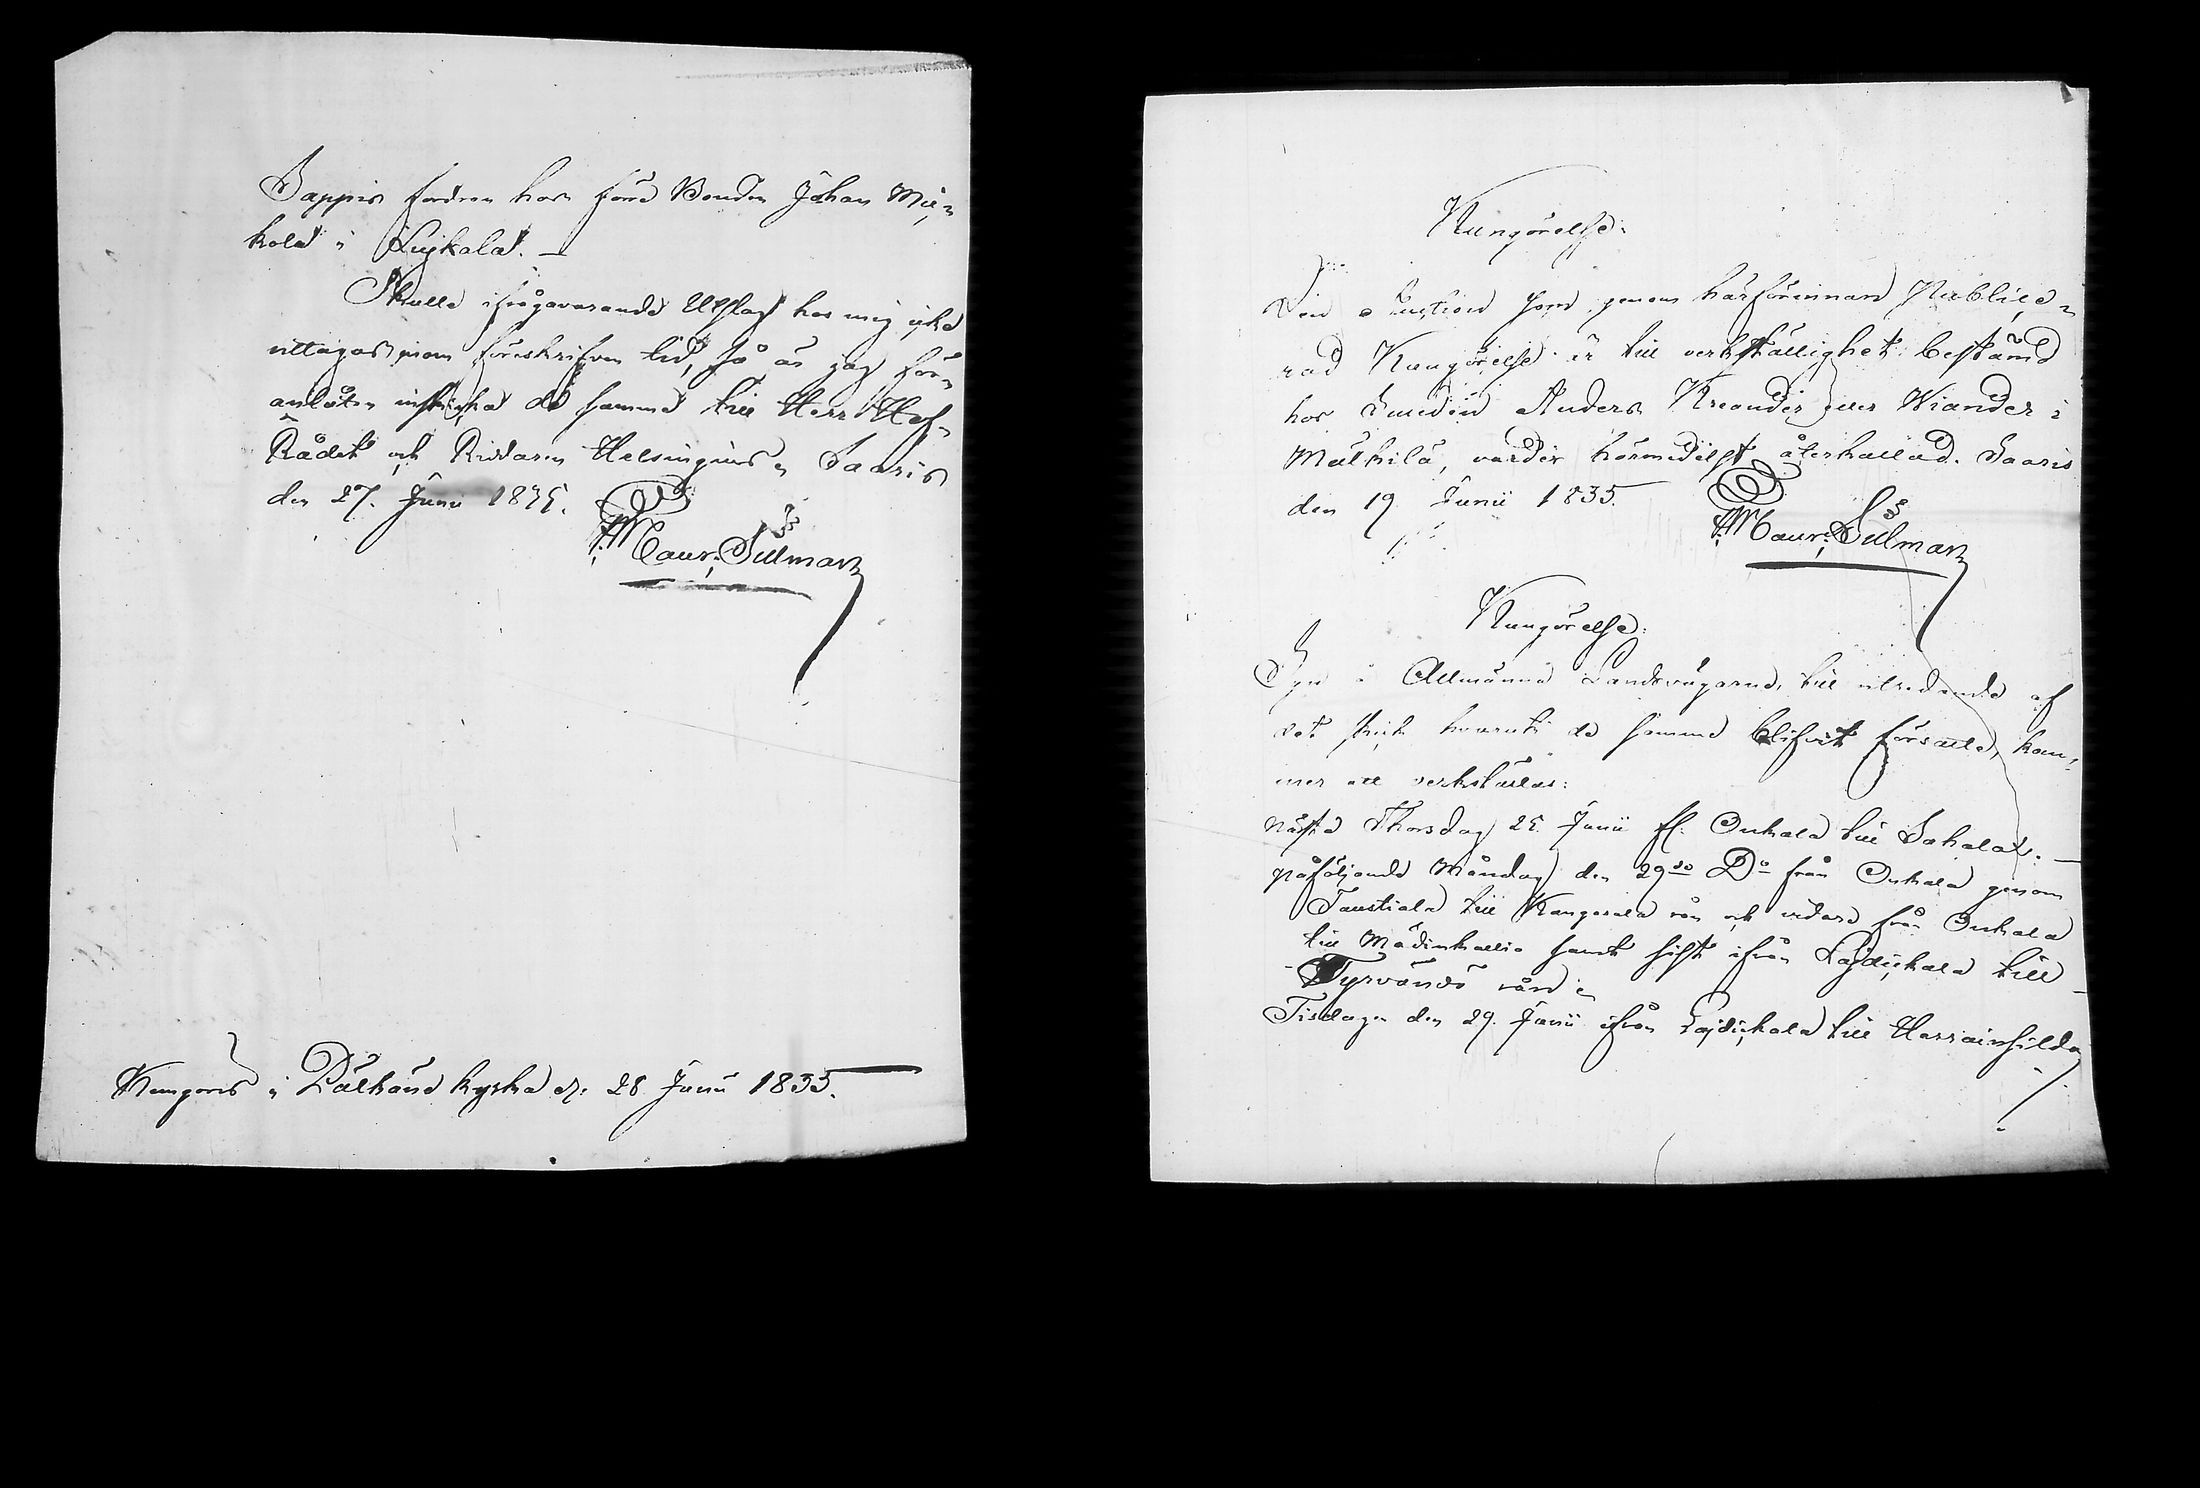 Sappis fordran hos förre Bonden Johan Mic-
kola i Luikala. —
Skulle ifrågavarande Utslag hos mig icke
uttagas inom föreskrifven tid, så är jag för-
anlåten inskicka de samma till Herr Hof-
Rådet och Riddaren Helsingius. Saaris
den 27. Junii 1835.
Maur: Silman
Kungjord i Pälkäne kyrka d: 28 Junii 1835.
Kungörelse:
Den Auction som genom härförinnan Publice-
rad Kungörelse är till verkställighet bestämd
hos Smeden Anders Kreander eller Wiander i
Mälkilä, varder härmedelst återkallad. Saaris
den 19 Junii 1835.
Maur: Silman
Kungörelse:
Syn å Allmänna Landsvägarne, till utredande af
det skick hvaruti de samma blifvit försatte, kom-
mer att verkställas:
nästa Thorsdag 25. Junii fr. Onkala till Sahalax. —
påföljande Måndag den 29de Do från Onkala genom
Taustiala till Kangasala rån och vidare från Onkala
till Mädinkallio samt sist ifrån Laidickala till
Tyrvändö rån
Tisdagen den 29. Junii ifrån Laidickala till Harrainsilda